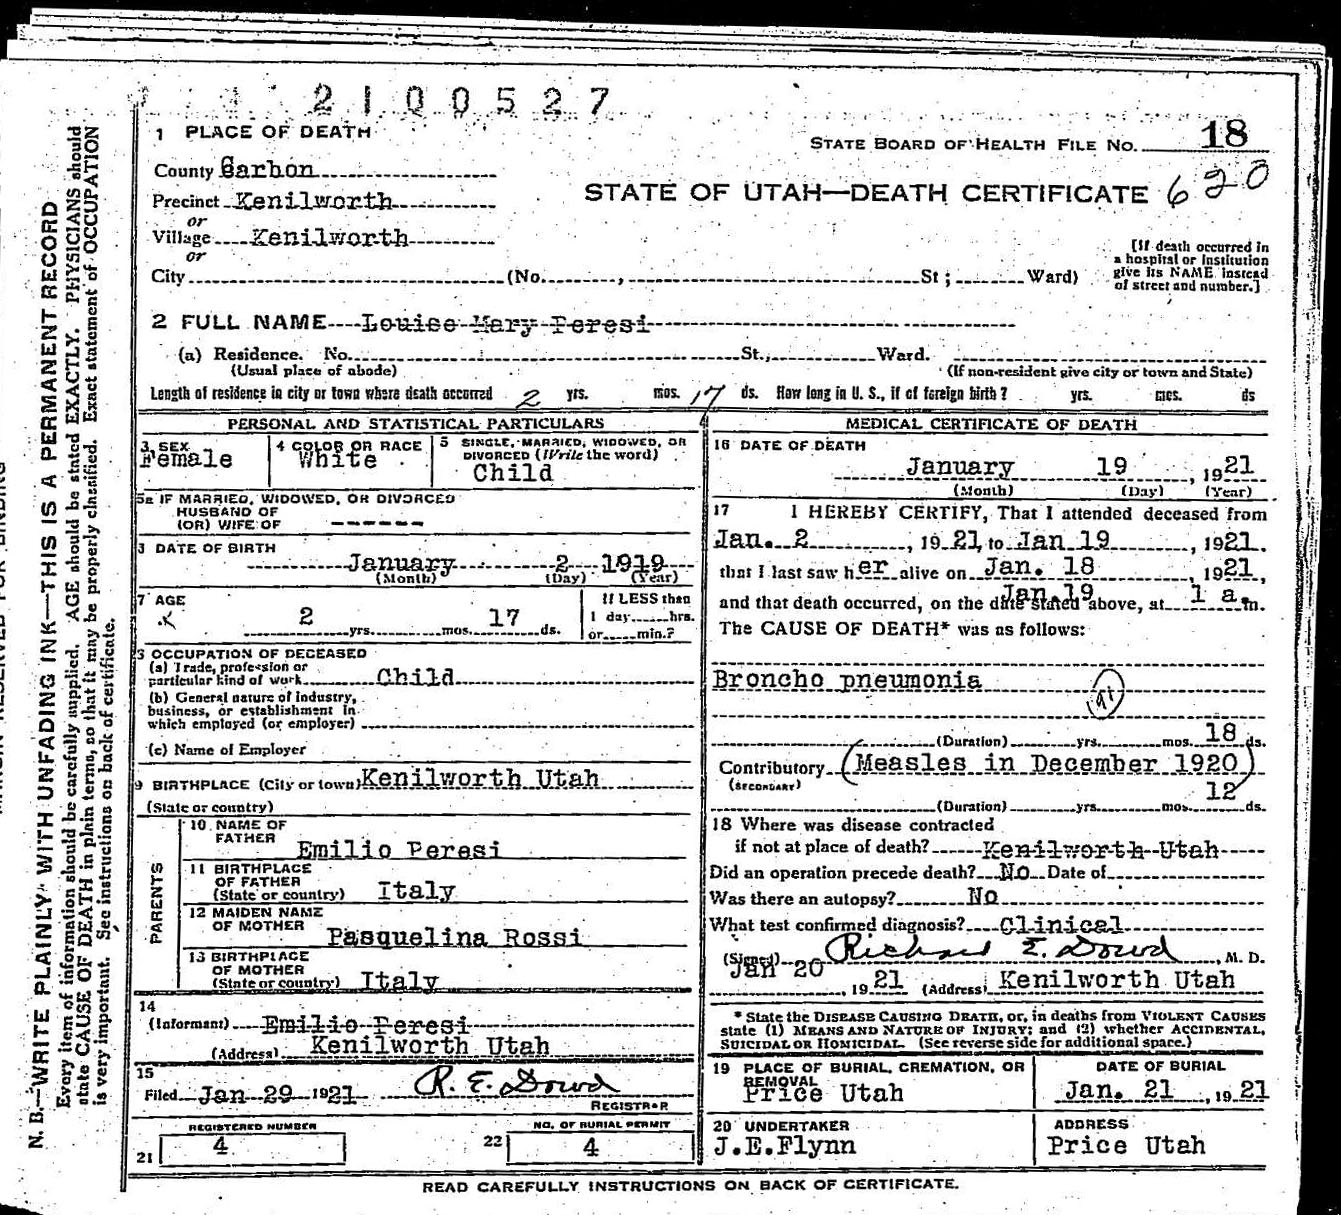 2100527
1 PLACE OF DEATH
STATE BOARD OF HEALTH FILE NO. 18
County Carbon
STATE OF UTAH—DEATH CERTIFICATE 620
Precinct Kenilworth
or
Village Kenilworth
or
City (No. , St ; Ward)
[If death occurred in
a hospital or institution
give its NAME instead
of street and number.]
2 FULL NAME Louise Mary Peresi
(a) Residence. No. St., Ward.
(Usual place of abode) (If non-resident give city or town and State)
Length of residence in city or town where death occurred 2 yrs. mos. 17 ds. How long in U. S., if of foreign birth? yrs. mos. ds
PERSONAL AND STATISTICAL PARTICULARS
3 SEX
Female
4 COLOR OR RACE
White
5 SINGLE, MARRIED, WIDOWED, OR
DIVORCED (Write the word)
Child
5a IF MARRIED, WIDOWED, OR DIVORCED
HUSBAND OF
(OR) WIFE OF ------
DATE OF BIRTH
January 2 1919
(Month) (Day) (Year)
7 AGE
2 yrs. mos. 17 ds.
If LESS than
1 day hrs.
or min.?
OCCUPATION OF DECEASED
(a) Trade, profession or
particular kind of work Child
(b) General nature of industry,
business, or establishment in
which employed (or employer)
(c) Name of Employer
9 BIRTHPLACE (City or town) Kenilworth Utah
(State or country)
PARENTS
10 NAME OF
FATHER Emilio Peresi
11 BIRTHPLACE
OF FATHER
(State or country) Italy
12 MAIDEN NAME
OF MOTHER Pasquelina Rossi
13 BIRTHPLACE
OF MOTHER
(State or country) Italy
14
(Informant) Emilio Peresi
(Address) Kenilworth Utah
15
Filed Jan 29 1921 R. E. Dowd
REGISTRAR
REGISTERED NUMBER
21 4
NO. OF BURIAL PERMIT
22 4
MEDICAL CERTIFICATE OF DEATH
16 DATE OF DEATH
January 19, 1921
(Month) (Day) (Year)
17 I HEREBY CERTIFY, That I attended deceased from
Jan. 2, 1921, to Jan 19, 1921.
that I last saw her alive on Jan. 18, 1921,
Jan.19
and that death occurred, on the date stated above, at 1 a. m.
The CAUSE OF DEATH* was as follows:
Broncho pneumonia
91
(Duration) yrs. mos. 18 ds.
Contributory (Measles in December 1920)
(SECONDARY)
(Duration) yrs. mos. 12 ds.
18 Where was disease contracted
if not at place of death? Kenilworth Utah
Did an operation precede death? No Date of
Was there an autopsy? No
What test confirmed diagnosis? Clinical
(Signed) Richard E. Dowd, M. D.
Jan 20, 1921 (Address) Kenilworth Utah
* State the DISEASE CAUSING DEATH, or, in deaths from VIOLENT CAUSES
state (1) MEANS AND NATURE OF INJURY; and (2) whether ACCIDENTAL,
SUICIDAL OR HOMICIDAL. (See reverse side for additional space.)
19 PLACE OF BURIAL, CREMATION, OR
REMOVAL
Price Utah
DATE OF BURIAL
Jan. 21, 1921
20 UNDERTAKER
J.E.Flynn
ADDRESS
Price Utah
READ CAREFULLY INSTRUCTIONS ON BACK OF CERTIFICATE.
N. B.—WRITE PLAINLY WITH UNFADING INK—THIS IS A PERMANENT RECORD
Every item of information should be carefully supplied. AGE should be stated EXACTLY. PHYSICIANS should
state CAUSE OF DEATH in plain terms, so that it may be properly classified. Exact statement of OCCUPATION
is very important. See instructions on back of certificate.